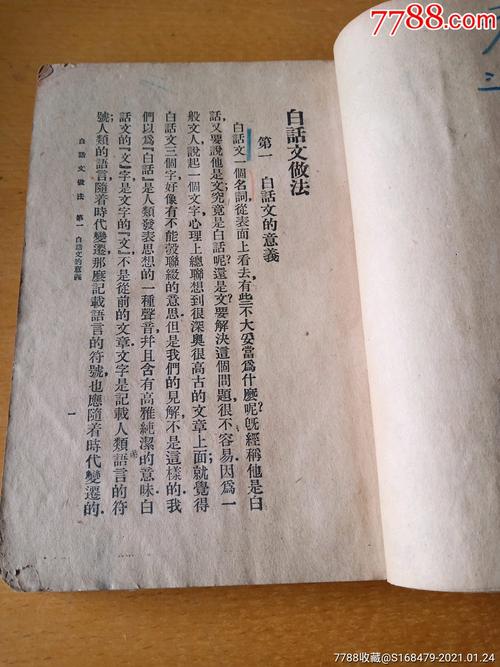 7788.com
白話文做法
第一 白話文的意義
白話文一個名詞，從表面上看去，有些不大妥當，爲什麼呢？旣經稱他是白
話，又要說他是文，究竟是白話呢？還是文？要解決這個問題，很不容易，因爲一
般文人，說起一個文字，心理上總聯想到很深奧很高古的文章上面；就覺得
白話文三個字，好像有不能彀聯綴的意思，但是我們的見解，不是這樣的，我
們以爲『白話』是人類發表思想的一種聲音，幷且含有高雅純潔的意味，白
話文的『文』字，是文字的『文』，不是從前的文章，文字是記載人類語言的符
號，人類的語言，隨着時代變遷，那麼記載語言的符號，也應隨着時代變遷的，
白話文做法 第一 白話文的意義
一
7788收藏@S168479-2021.01.24